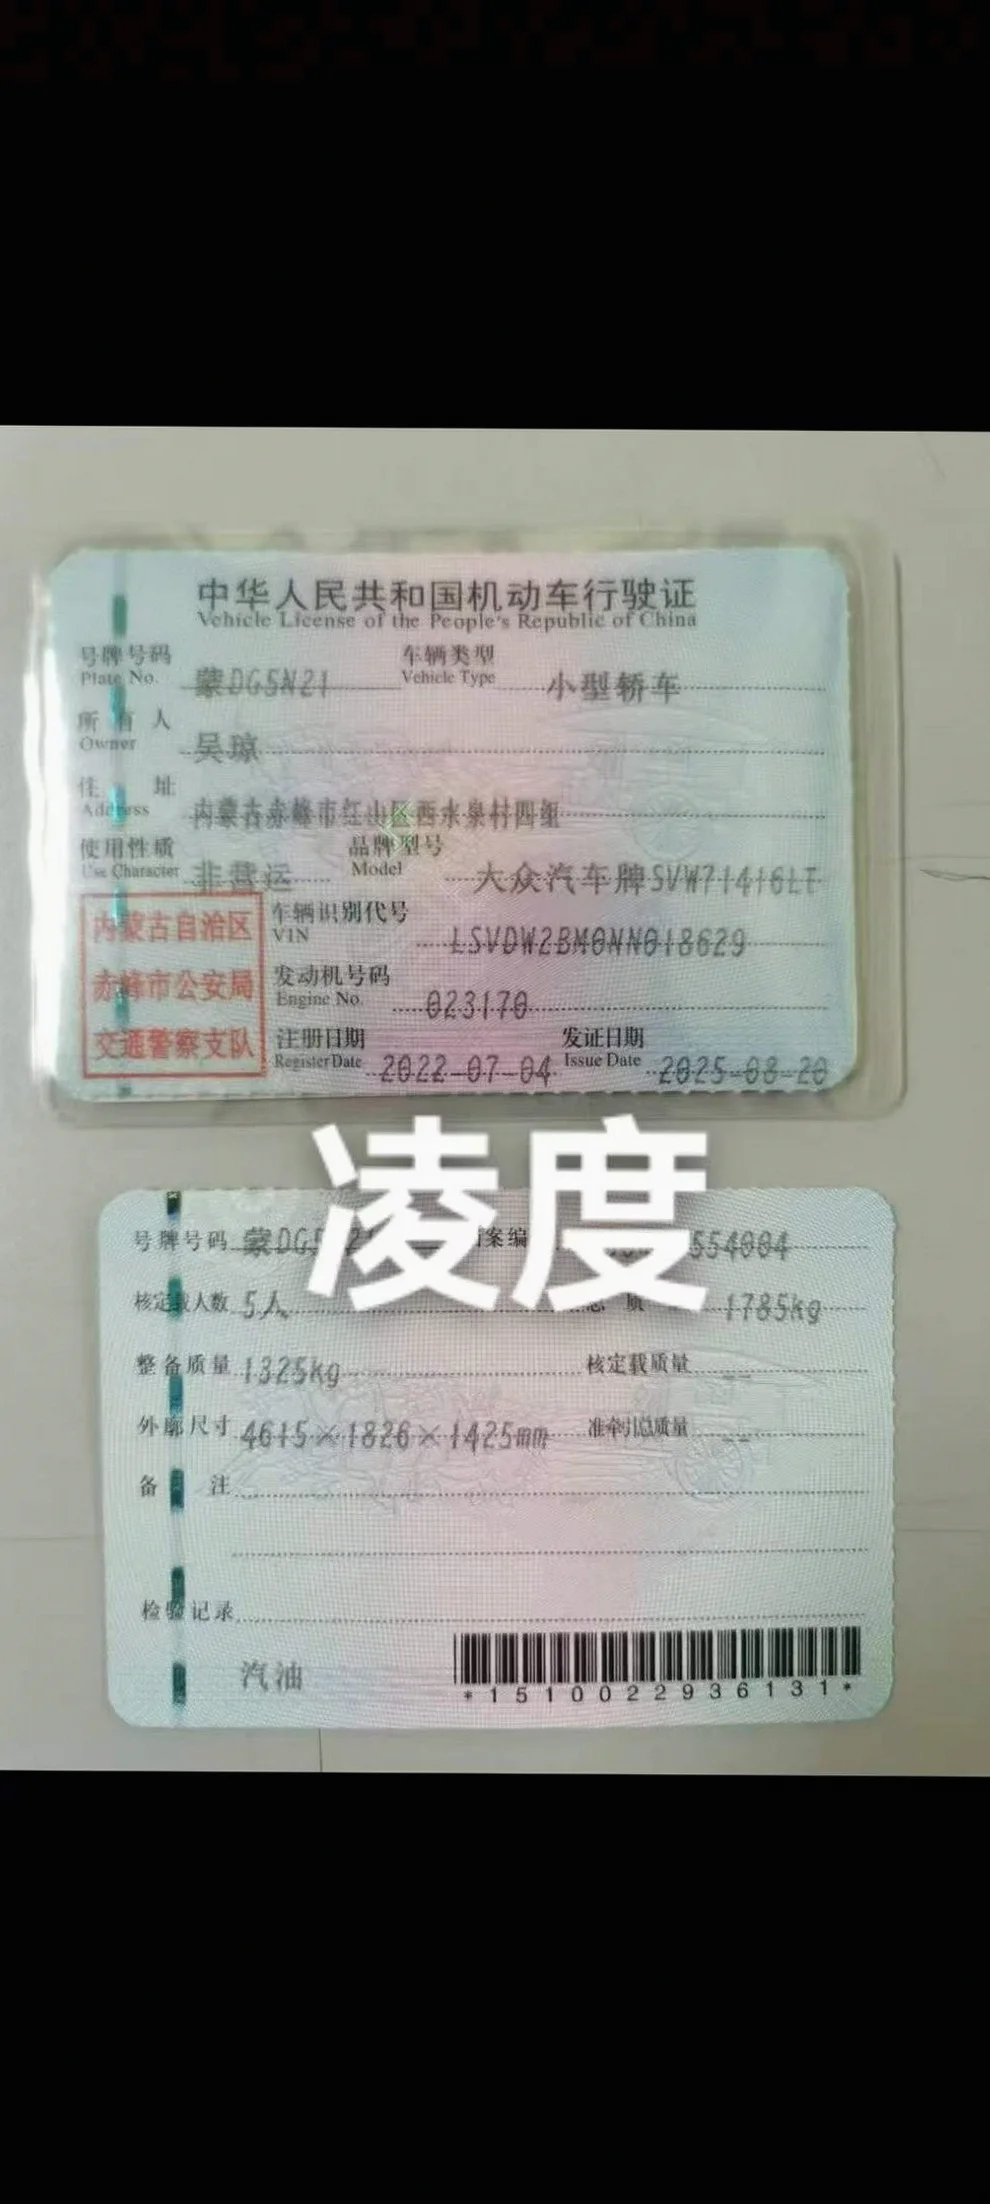 中华人民共和国机动车行驶证
Vehicle License of the People's Republic of China
号牌号码 蒙DG5N21 车辆类型 小型轿车
Plate No. Vehicle Type
所有人 吴琼
Owner
住址 内蒙古赤峰市红山区西水泉村四组
Address
使用性质 非营运 品牌型号 大众汽车牌SVW71416LT
Use Character Model
内蒙古自治区
赤峰市公安局
交通警察支队
车辆识别代号 LSVDW2BM0NN018629
VIN
发动机号码 023170
Engine No.
注册日期 2022-07-04 发证日期 2025-08-20
Register Date Issue Date
凌度
号牌号码 蒙DG5 21 案编 554004
核定载人数 5人 总 质 1785kg
整备质量 1325kg 核定载质量 --
外廓尺寸 4615×1826×1425mm 准牵引总质量 --
备注
检验记录
汽油
*1510022936131*